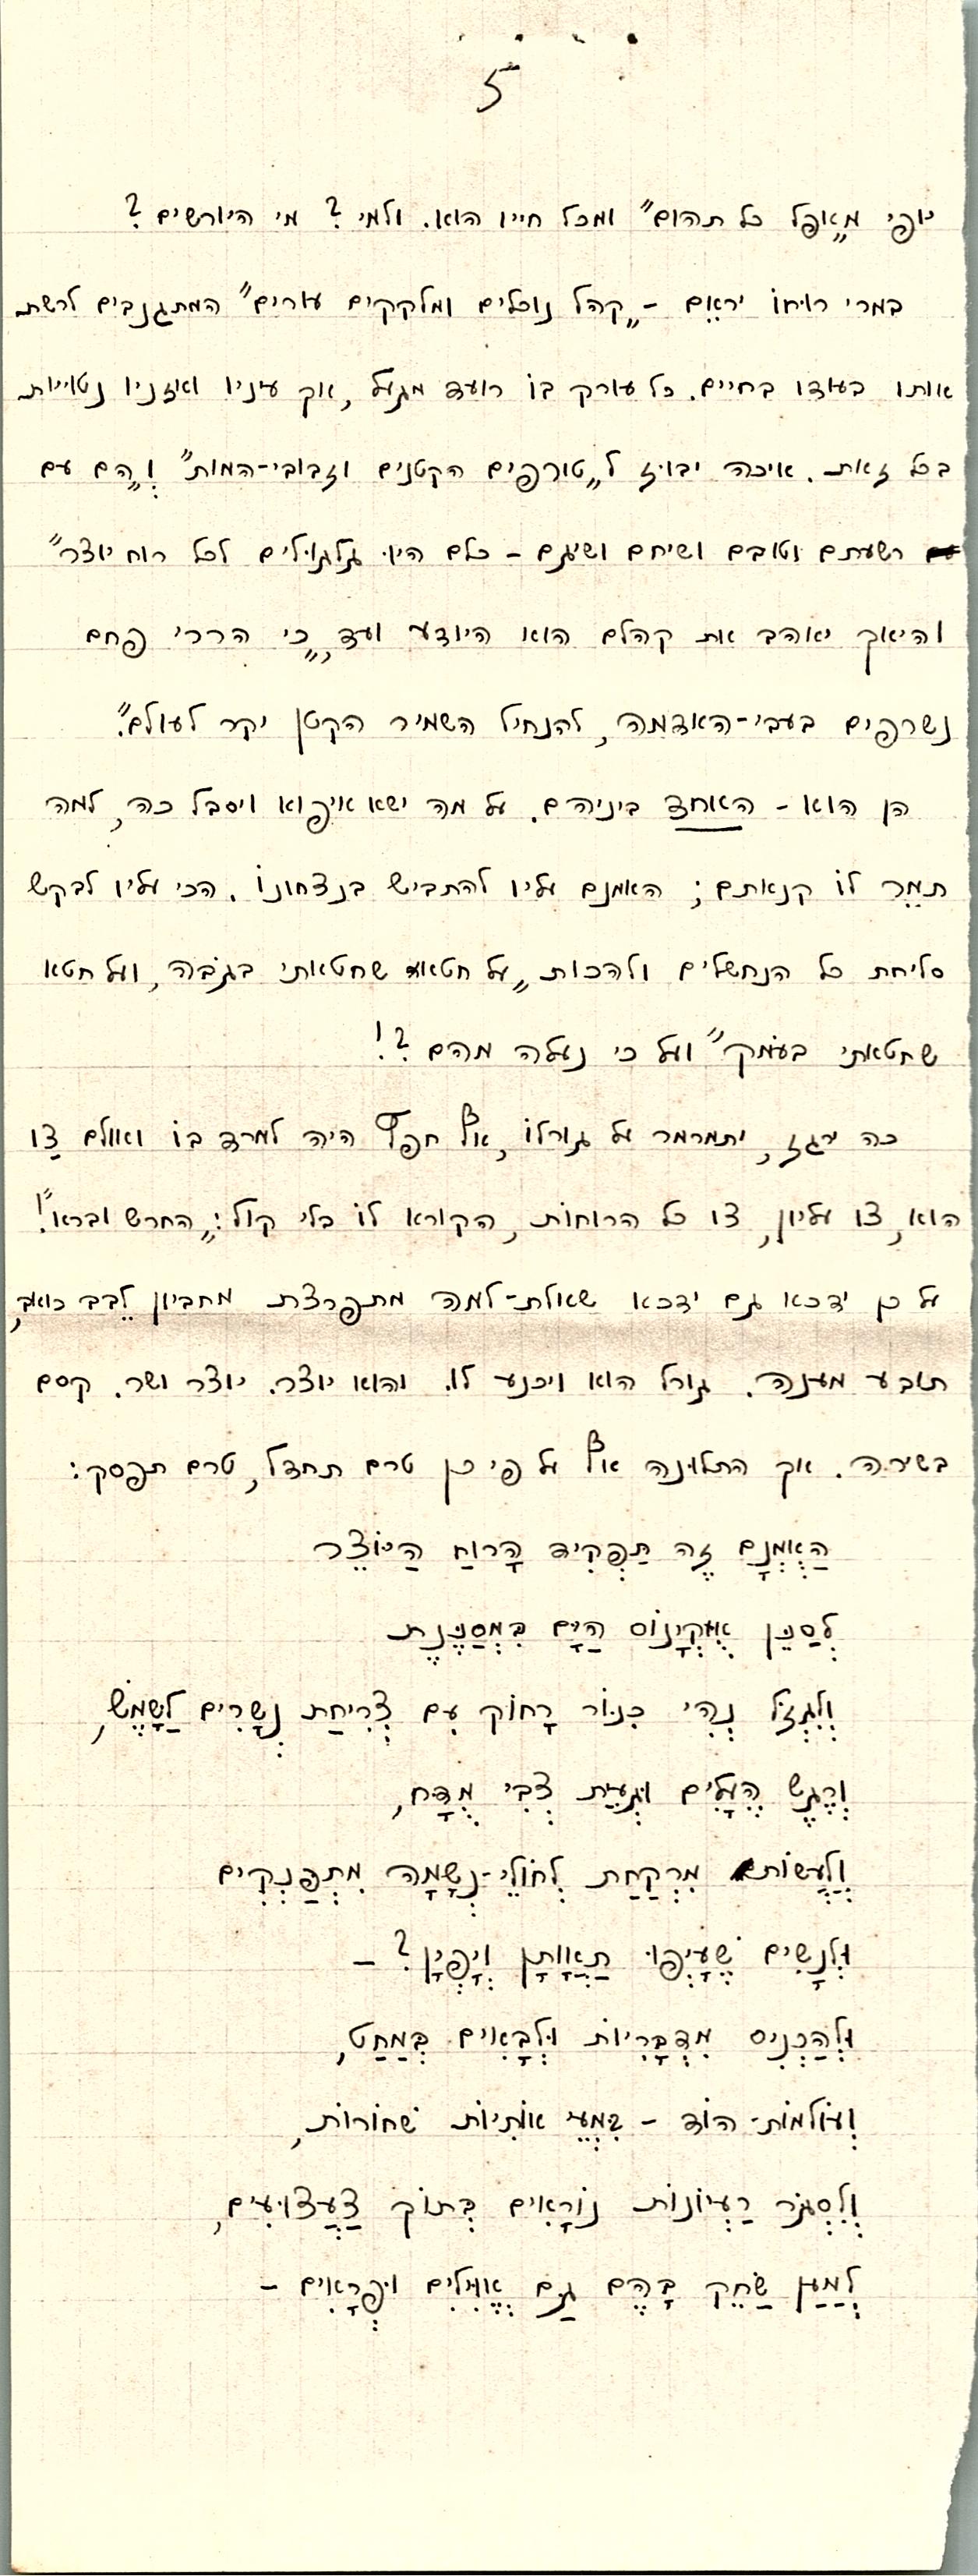 5
יופי מ„אופל כל תהום” ומכל חייו הוא. ולמי? מי היורשים?
במרי רוחו יראם – „קהל נוכלים ומלקקים עורים” המתגנבים לרשת
אותו בעודו בחיים. כל עורק בו רועד מגועל, אך עיניו ואזניו נטויות
בכל זאת. איכה יבוז ל„טורפים הקטנים וזבובי-המות” וְ„הם עם
רשעתם וטובם ושיחם ושיגם – כלם היו גלגולים לכל רוח יוצר”
והיאך יאהב את קהלם הוא היודע ועד, „כי הררי פחם
נשרפים בעבי-האדמה, להנחיל השמיר הקטן יקר לעולם”.
הן הוא – האוחד ביניהם. על מה ישא איפוא ויסבל כה, למה
תמֵר לוֹ קנאתם; האמנם עליו להתביש בנצחונוֹ. הכי עליו לבקש
סליחת כל הנחשלים ולהכות „על חטא שחטאתי בגֹבה, ועל חטא
שחטאתי בעֹמק” ועל כי נעלה מהם?!
כה ירגז, יתמרמר על גורלוֹ, אף חפץ היה למרד בוֹ ואולם צַו
הוא, צו עליון, צו כל הרוחוֹת, הקורא לוֹ בלי קול: „החרש וברא”!
על כן ידכא גם ידכא שאלת-למה מתפרצת מחביון לֵבב כואב,
תובע מענה. גורל הוא ויכנע לו. והוא יוצר. יוצר ושר. קסם
בשירה. אך התלוּנה אף על פי כן טרם תחדל, טרם תפסק:
הַאֻמְנָם זֶה תַּפְקִיד הָרוּחַ הַיּוֹצֵר
לְסַנֵּן אֻקְיָנוֹס הַיָּם בִּמְסַנֶּנֶת
וְלִגְזֹל נְהִי כִּנּוֹר רָחוֹק עִם צְרִיחַת נְשָׁרִים לַשֶּׁמֶשׁ,
וְרֶגֶשׁ הֶעָלִים וּגְעִיַּת צְבִי מֻדָּח,
וְלַעֲשׂוֹת מִרְקַחַת לְחוֹלֵי-נְשָׁמָה מִתְפַּנְּקִים
וּלְנָשִׁים שֶׁעָיְפוּ תַּאֲוָתָן וְיָפְיָן? –
וּלְהַכְנִיס מִדְבָּרִיּוֹת וּלְבָאִים בְּמַחַט,
וְעוֹלמוֹת-הוֹד – בִּמְעֵי אוֹתִיּוֹת שְׁחוֹרוֹת,
וְלִסְגֹּר רַעְיוֹנוֹת נוֹרָאִים בְּתוֹךְ צַעֲצוּעִים,
לְמַעַן שַׂחֵק בָּהֶם גַּם אֱוִילִים וּפְרָאִים –